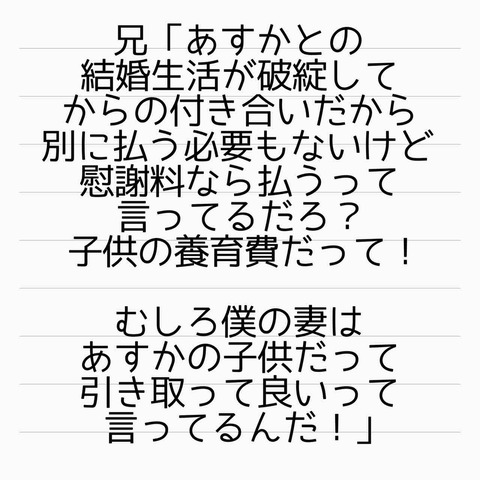 兄「あすかとの
結婚生活が破綻して
からの付き合いだから
別に払う必要もないけど
慰謝料なら払うって
言ってるだろ？
子供の養育費だって！
むしろ僕の妻は
あすかの子供だって
引き取って良いって
言ってるんだ！」